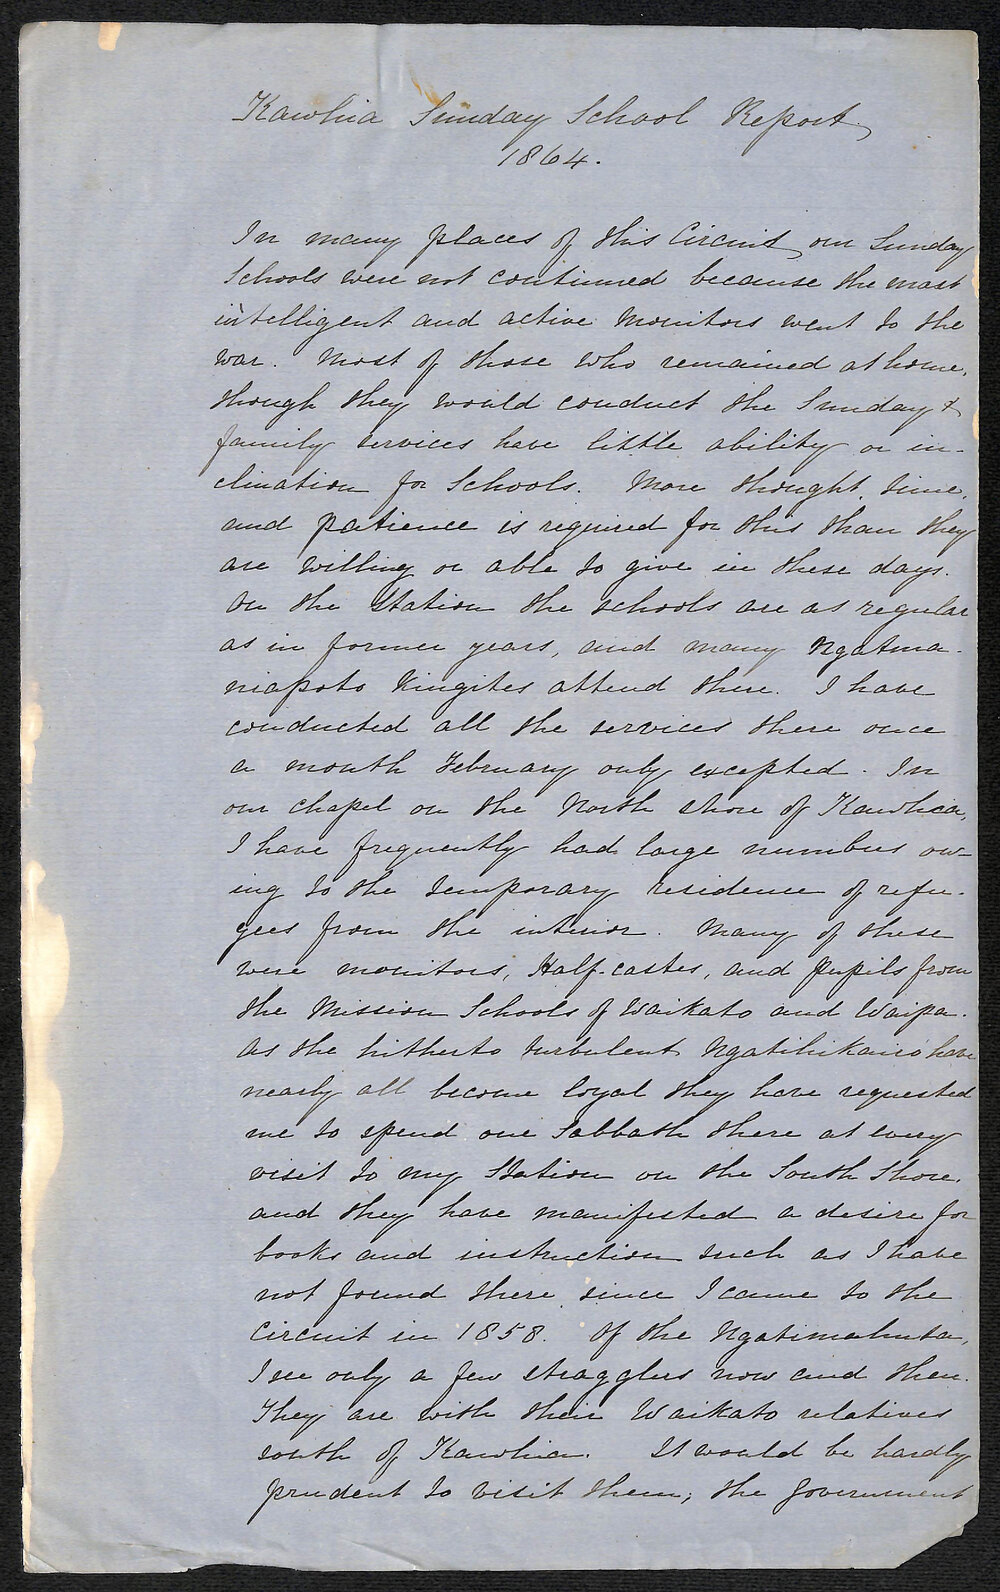 Kawhia Sunday School Report
1864.
In many places of this Circuit our Sunday
Schools were not continued because the most
intelligent and active Monitors went to the
war. Most of those who remained at home,
though they would conduct the Sunday &
family services have little ability or in-
clination for Schools. More thought, time,
and patience is required for this than they
are willing or able to give in these days.
On the Station the schools are as regular
as in former years, and many Ngatima-
niapoto Kingites attend there. I have
conducted all the services there once
a month February only excepted. In
our chapel on the North shore of Kawhia,
I have frequently had large numbers ow-
ing to the temporary residence of refu-
gees from the interior. Many of these
were monitors, Half-castes, and pupils from
the Mission Schools of Waikato and Waipa.
As the hitherto turbulent Ngatihikairo have
nearly all become loyal they have requested
me to spend one Sabbath there at every
visit to my Station on the South Shore,
and they have manifested a desire for
books and instruction such as I have
not found there since I came to the
Circuit in 1858. Of the Ngatimahuta,
I see only a few stragglers now and then.
They are with their Waikato relatives
south of Kawhia. It would be hardly
prudent to visit them; the Government